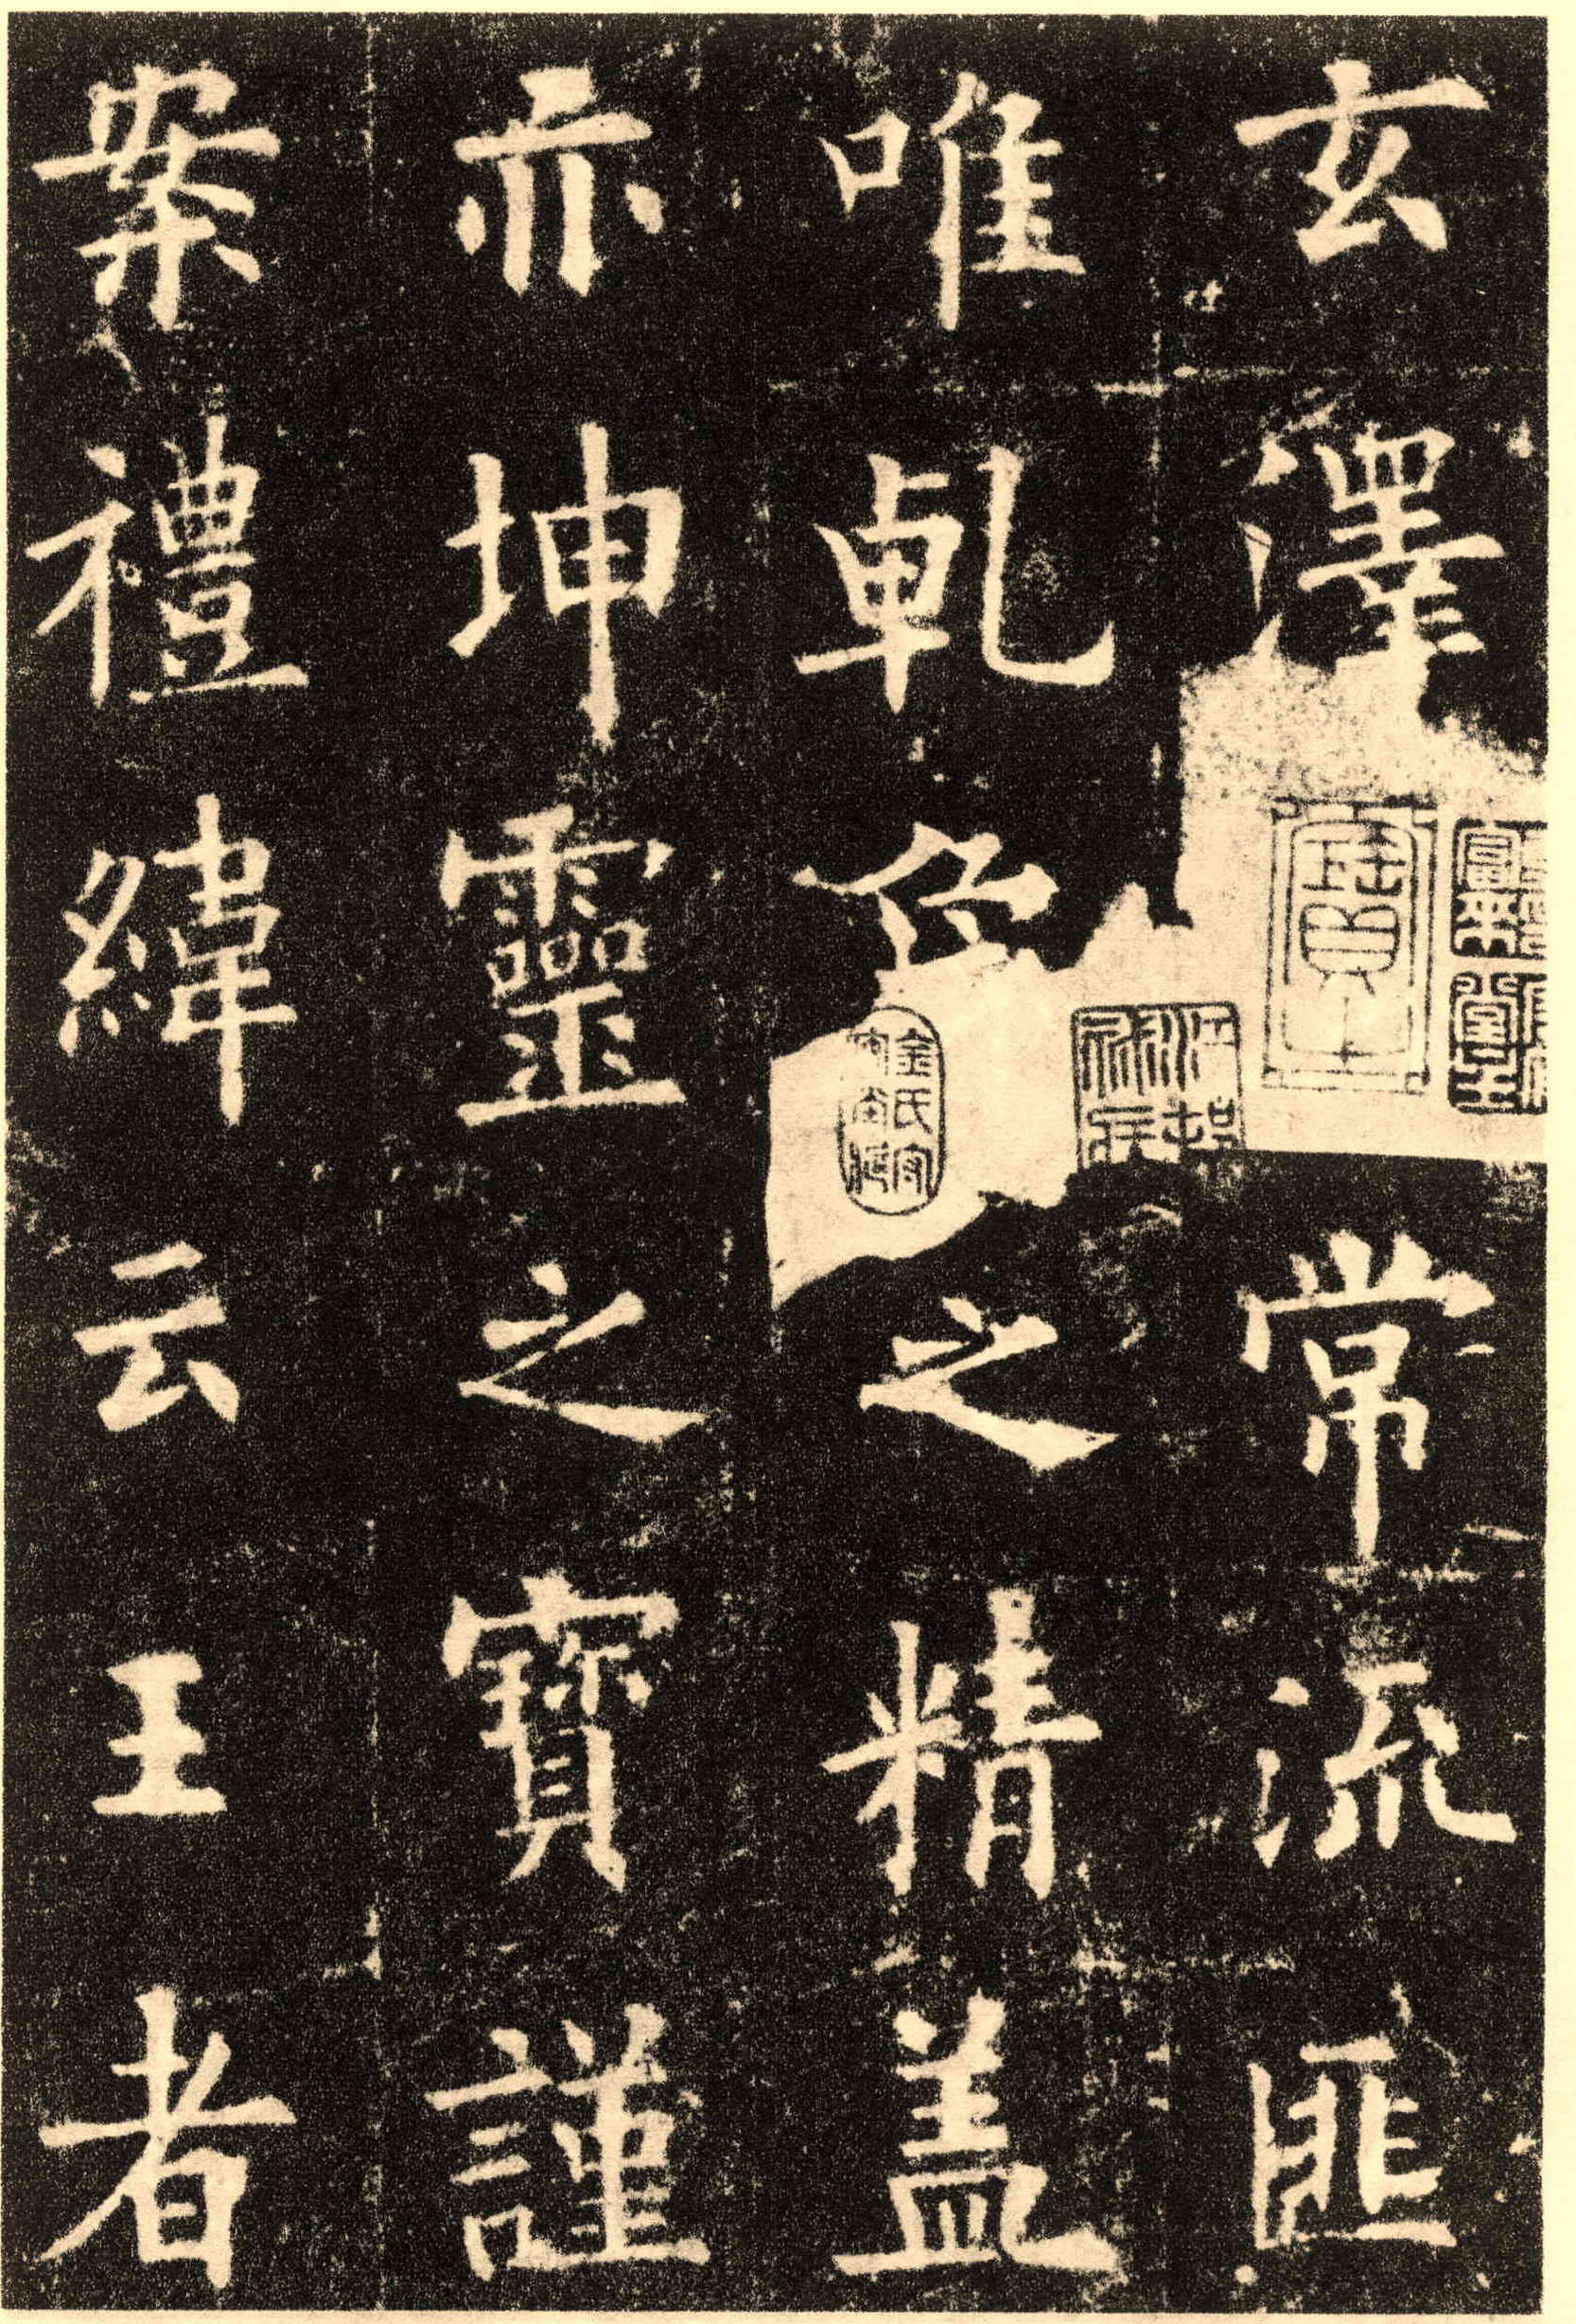 玄澤常流匪
唯乹之精盖
亦坤靈之寶謹
案禮緯云王者
金氏